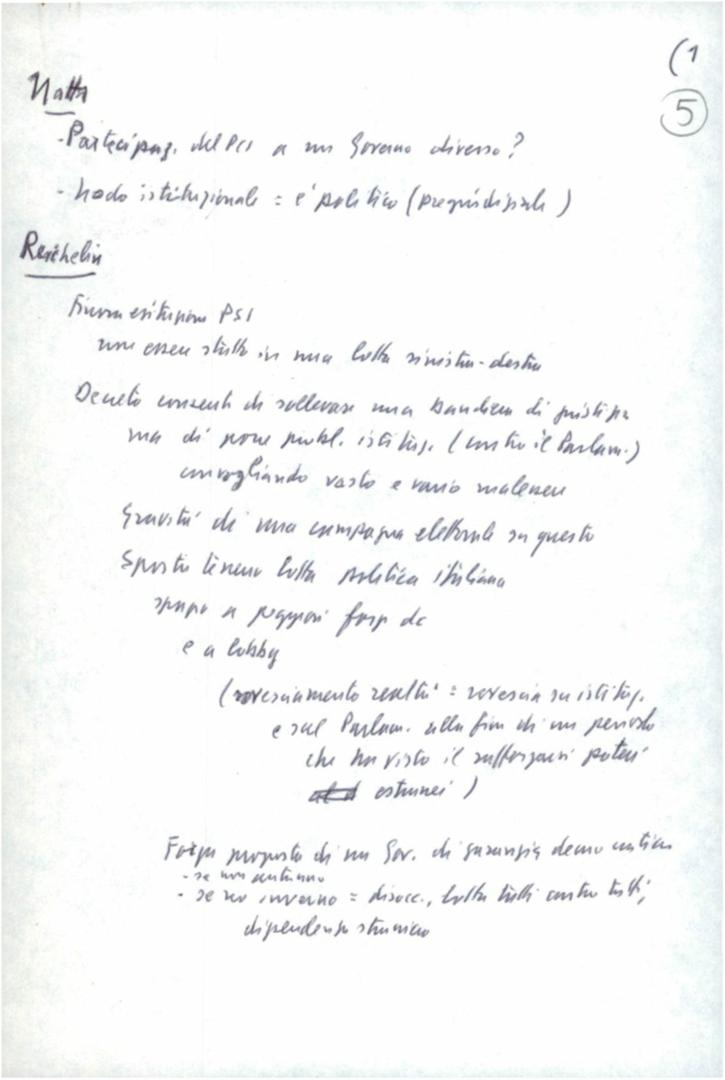 (1
5
Natta
- Partecipaz. del PCI a un Governo diverso?
- nodo istituzionale = è politico (pregiudiziale)
Reichlin
PSI
non essere in una lotta sinistra-destra
Decreto consentì di sollevare una bandiera di giustizia
ma di porre probl. istituz. (contro il Parlam.)
convogliando vasto e vario malessere
Gravità di una campagna elettorale su questo
Sposta terreno lotta politica italiana
spazio a peggiori forze dc
e a lobby
(rovesciamento realtà = rovescia su istituz.
e sul Parlam. alla fine di un periodo
che ha visto il rafforzarsi poteri
estranei)
Forza proposta di un Gov. di garanzia democratica
- se non autunno
- se no inverno = disocc., lotta tutti contro tutti,
dipendenza straniero